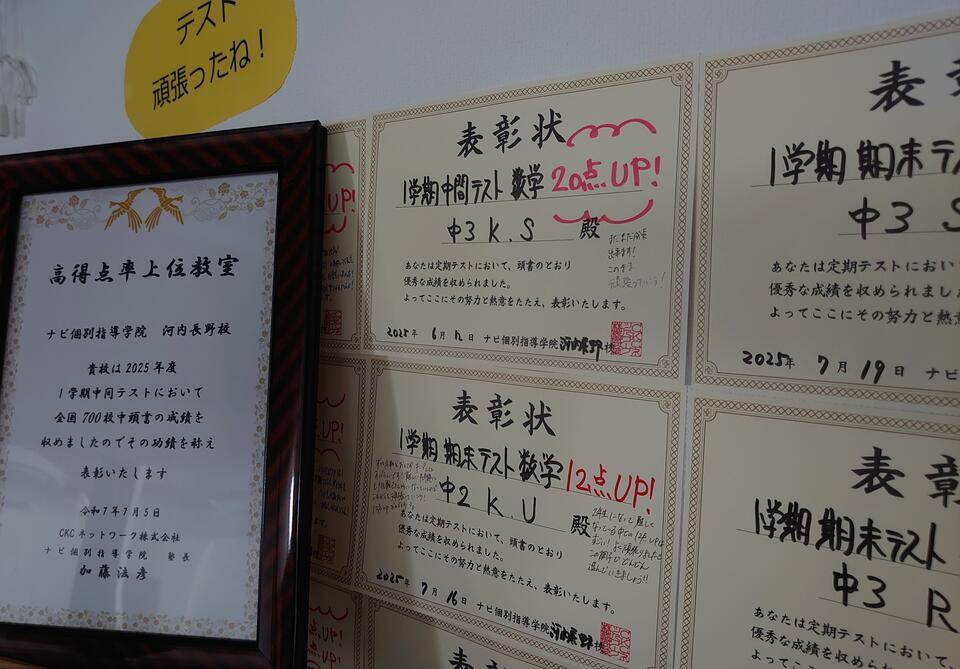 テスト
頑張ったね！
高得点率上位教室
ナビ個別指導学院　河内長野校
貴校は2025年度
1学期中間テストにおいて
全国700校中頭書の成績を
収めましたのでその功績を称え
表彰いたします
令和7年7月5日
CKCネットワーク株式会社
ナビ個別指導学院　塾長
加藤法彦
表彰状
1学期中間テスト 数学 20点UP!
中3 K.S 殿
まだまだ成長
出来ます!
このまま
頑張っていこう!
あなたは定期テストにおいて、頭書のとおり
優秀な成績を収められました。
よってここにその努力と熱意をたたえ、表彰いたします。
2025年 6月 日 ナビ個別指導学院河内長野校
表彰状
1学期 期末テスト 数学 12点UP!
中2 K.U 殿
あなたは定期テストにおいて、頭書のとおり
優秀な成績を収められました。
よってここにその努力と熱意をたたえ、表彰いたします。
2025年 7月 16日 ナビ個別指導学院河内長野校
表彰
1学期 期末テ
中3 S
あなたは定期テストにおい
優秀な成績を収められまし
よってここにその努力と熱意
2025年 7月 19日 ナビ
表彰
1学期 期末テスト
中3 R
あなたは定期テストにおいて、
優秀な成績を収められました
UP!
UP!
点UP!
表彰状